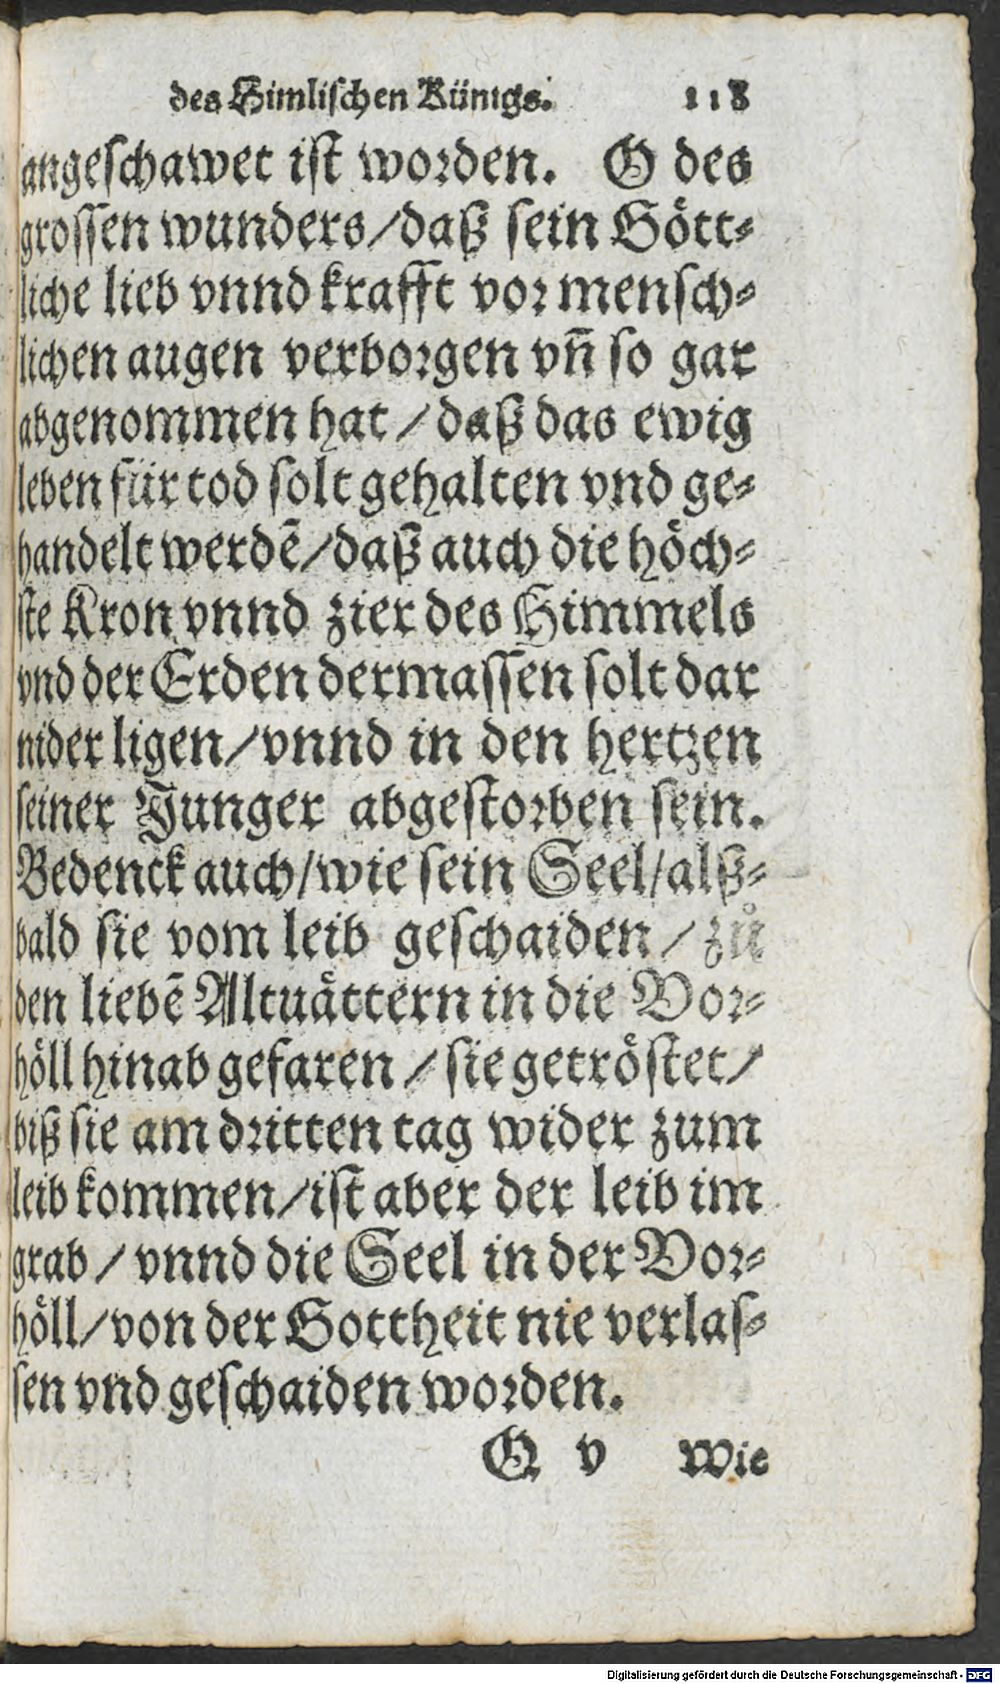 des Himlischen Künigs. 118
angeschawet ist worden. O des
grossen wunders/daß sein Gött⸗
liche lieb vnnd krafft vor mensch⸗
lichen augen verborgen vn̄ so gar
abgenommen hat/daß das ewig
leben für tod solt gehalten vnd ge⸗
handelt werdē/daß auch die höch⸗
ste Kron vnnd zier des Himmels
vnd der Erden dermassen solt dar
nider ligen/vnnd in den hertzen
seiner Junger abgestorben sein.
Bedenck auch/wie sein Seel/alß⸗
bald sie vom leib geschaiden/zů
den liebē Altuättern in die Vor⸗
höll hinab gefaren/sie getröstet/
biß sie am dritten tag wider zum
leib kommen/ist aber der leib im
grab/vnnd die Seel in der Vor⸗
höll/von der Gottheit nie verlas⸗
sen vnd geschaiden worden.
Q v Wie
Digitalisierung gefördert durch die Deutsche Forschungsgemeinschaft - DFG